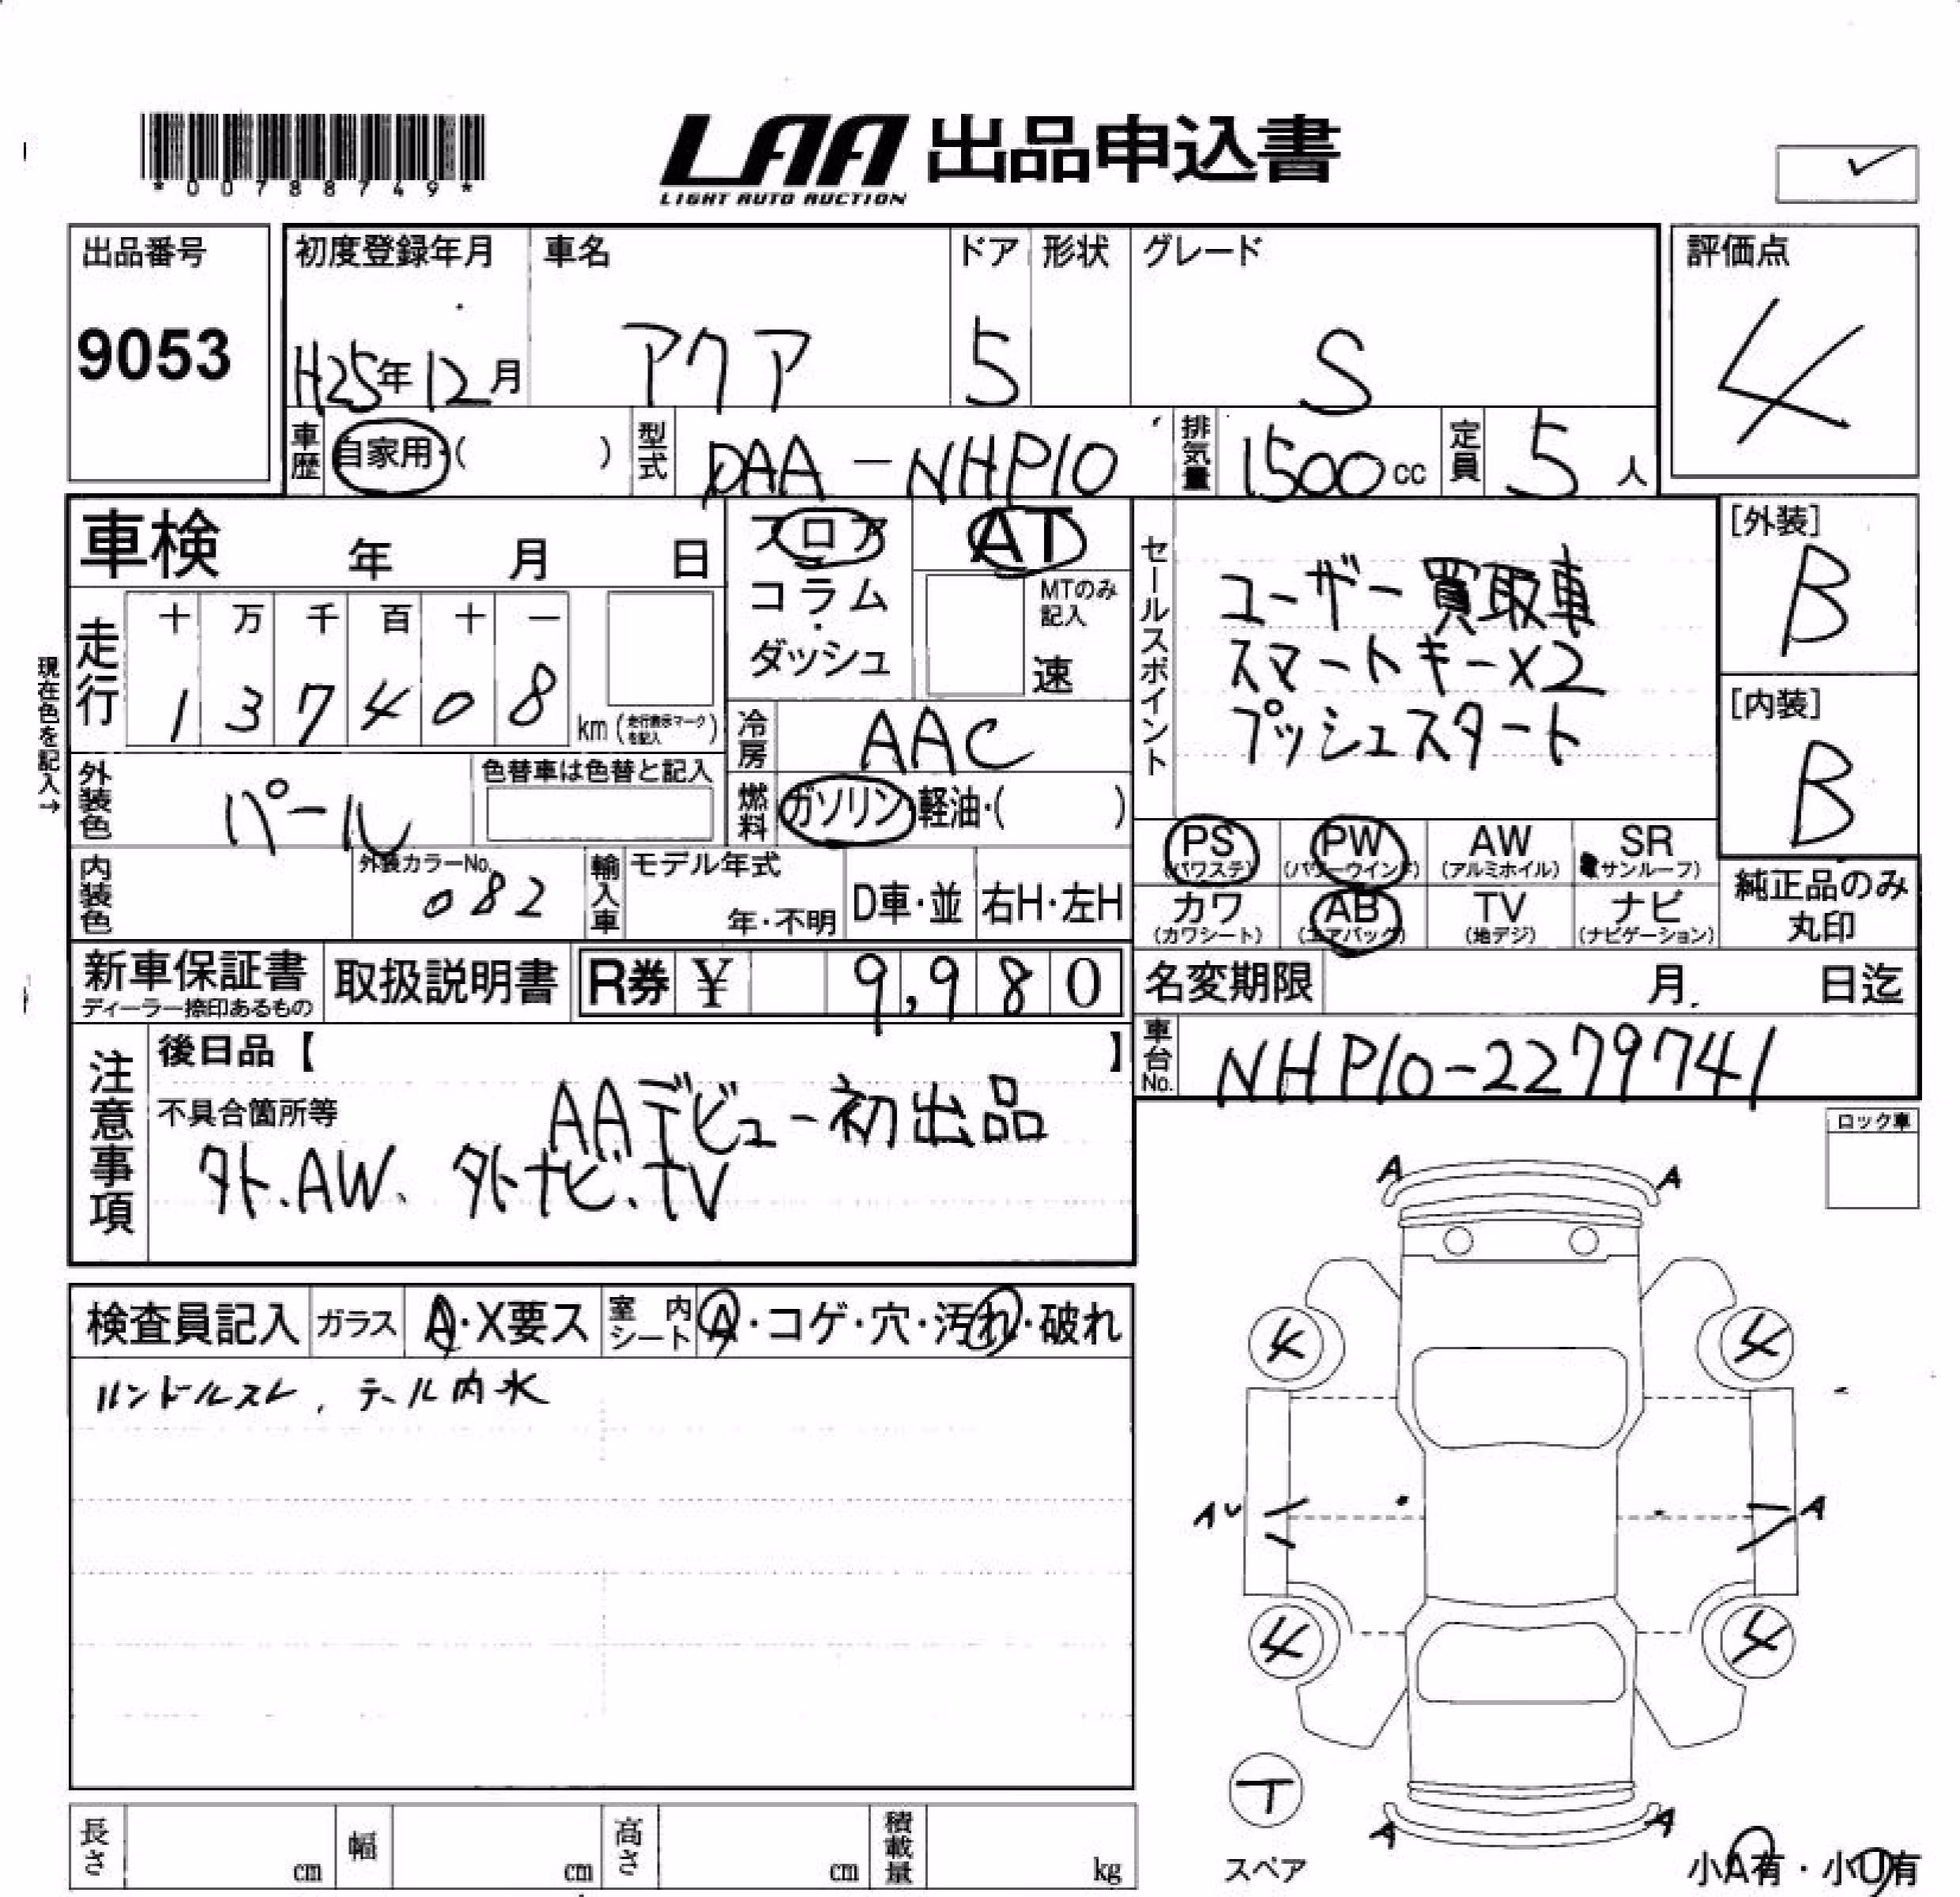 *00788749*
LAA 出品申込書
LIGHT AUTO AUCTION
出品番号
9053
初度登録年月
H25年12月
車名
アクア
ドア
5
形状
グレード
S
評価点
4
車歴
自家用・( )
型式
DAA-NHP10
排気量
1500cc
定員
5人
車検 年 月 日
フロア
コラム
・
ダッシュ
AT
MTのみ
記入
速
セールスポイント
ユーザー買取車
スマートキーX2
プッシュスタート
[外装]
B
[内装]
B
現在色を記入→
走行
十 万 千 百 十 一
1 3 7 4 0 8
km (走行表示マークを記入)
冷房
AAC
燃料
ガソリン・軽油・( )
外装色
パール
色替車は色替と記入
内装色
外装カラーNo.
082
輸入車
モデル年式
年・不明
D車・並
右H・左H
PS (パワステ)
PW (パワーウインド)
AW (アルミホイル)
SR (サンルーフ)
カワ (カワシート)
AB (エアバッグ)
TV (地デジ)
ナビ (ナビゲーション)
純正品のみ
丸印
新車保証書
ディーラー捺印あるもの
取扱説明書
R券 ¥ 9,980
名変期限 月 日迄
車台No.
NHP10-2279741
注意事項
後日品【 】
不具合箇所等
AAデビュー初出品
外.AW、外ナビ.TV
ロック車
検査員記入
ガラス
A・X要ス
室内シート
A・コゲ・穴・汚れ・破れ
ハンドルスレ, テール内水
A A
4 4
A
4 4
T
スペア
A A
小A有・小U有
長さ cm
幅 cm
高さ cm
積載量 kg